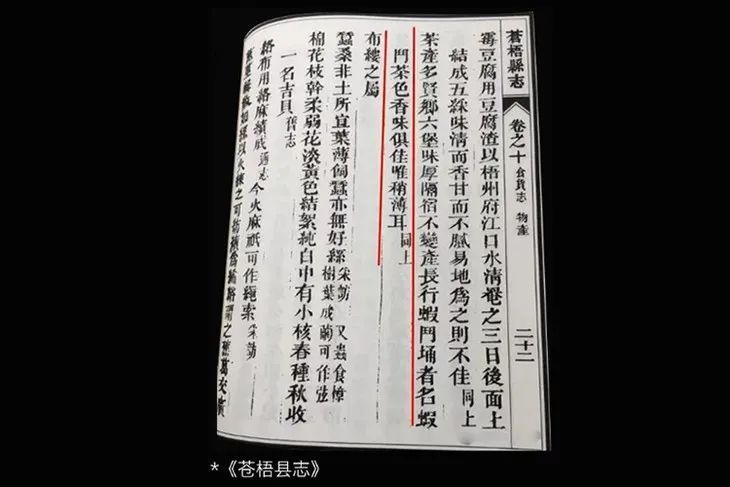 蒼梧縣志
卷之十 食貨志 物產
二十二
霉豆腐用豆腐渣以梧州府江口水清罨之三日後面上
結成五綵味清而香甘而不膩易地為之則不佳同上
茶產多賢鄉六堡味厚隔宿不變產長行蝦鬥埇者名蝦
鬥茶色香味俱佳唯稍薄耳同上
布縷之屬
蠶桑非土所宜葉薄飼蠶亦無好絲采訪 又蟲食樟
樹葉成繭可作弦
棉花枝幹柔弱花淡黃色結絮純白中有小核春種秋收
一名吉貝舊志
絡布用絡麻績成通志今火麻祇可作繩索采訪
之
*《苍梧县志》